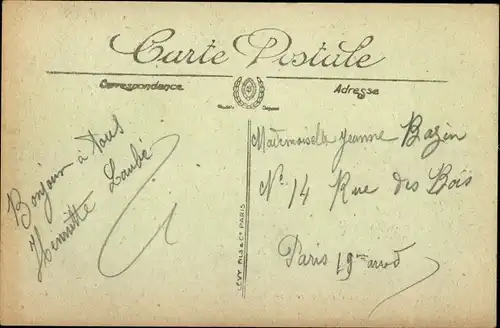 Carte Postale
Correspondance
Adresse
Bonjour à tous
Henriette Loubé
Mademoiselle Jeanne Bazin
N° 14 Rue des Bois
Paris 19me arrd
LEVY FILS & Cie PARIS